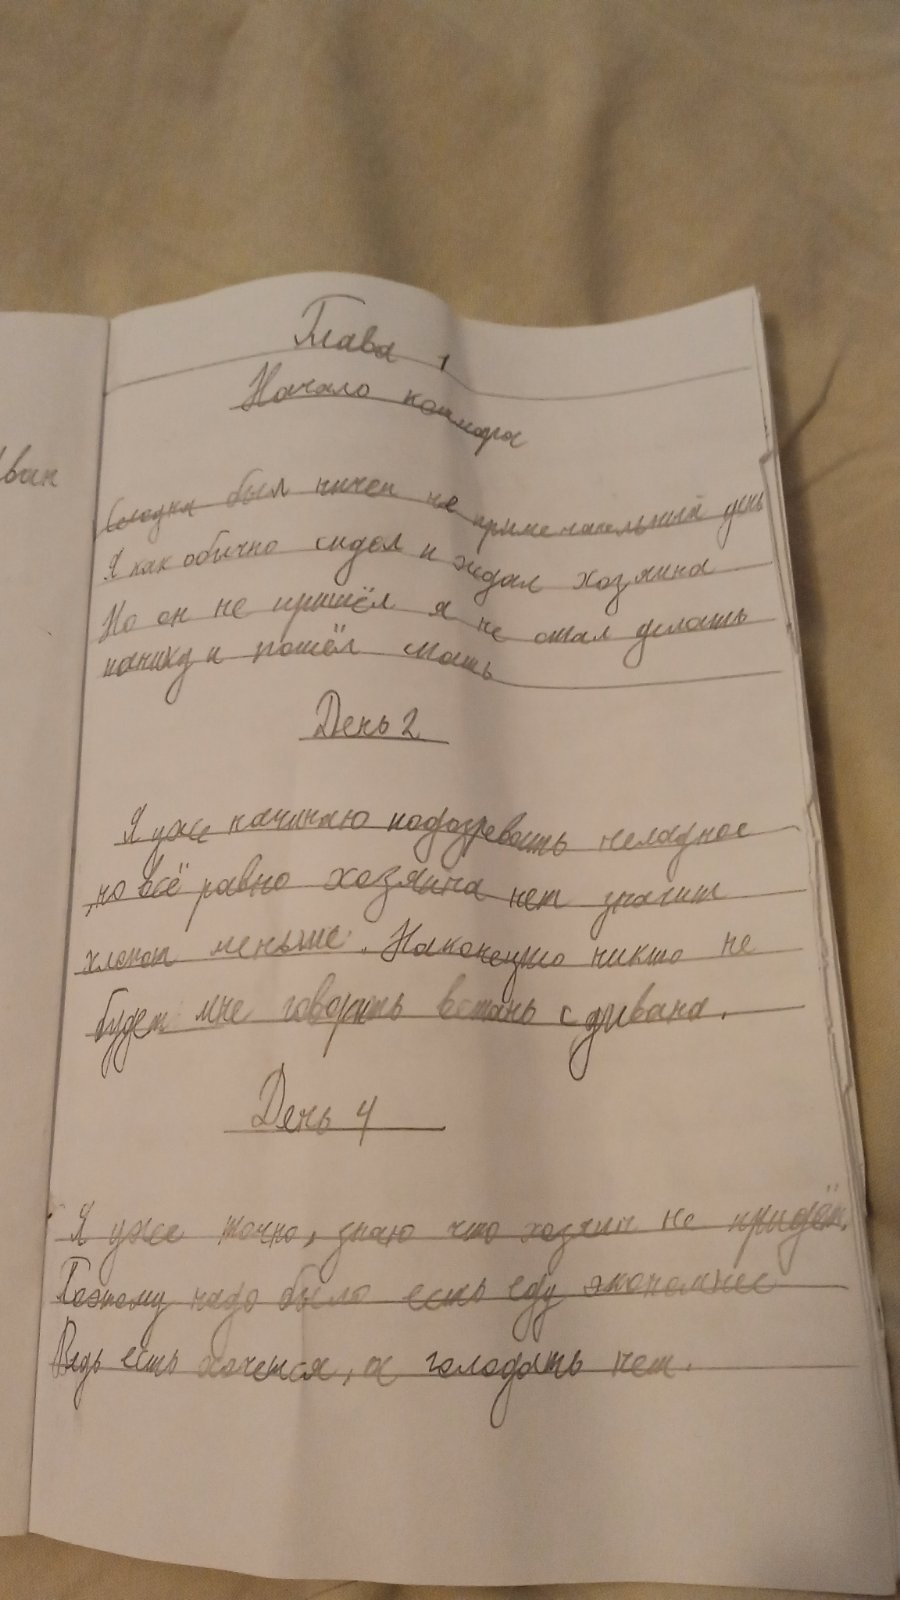 Глава 1
Начало кошмара
был ничем не примечательный день
Я как обычно сидел и ждал хозяина
Но он не пришёл я не стал делать
панику и пошёл спать
День 2
Я уже начинаю подозревать неладное
,но всё равно хозяина нет значит
хлопот меньше. Наконецто никто не
будет мне говорить встань с дивана.
День 4
Я уже точно, знаю что хозяин не придёт.
Поэтому надо было есть еду экономнее
Ведь есть хочется, а голодать нет.